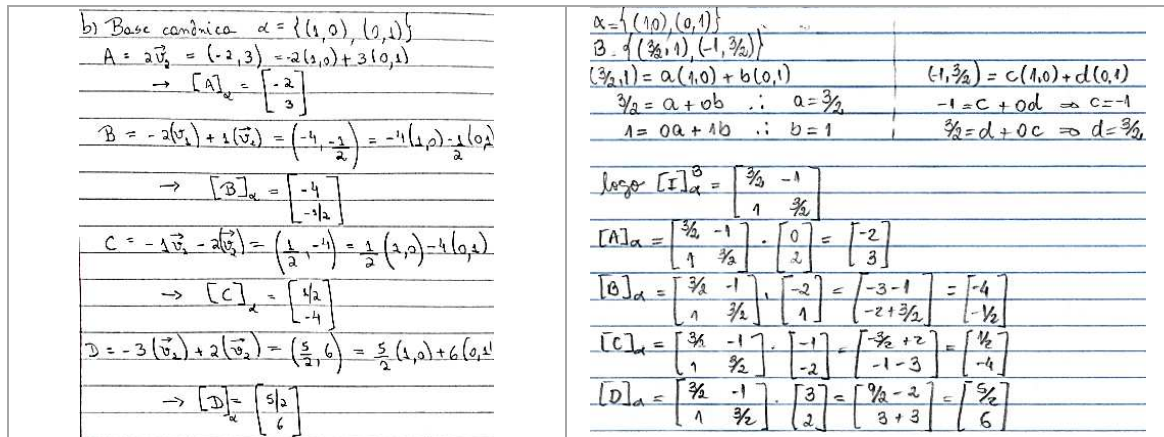 b) Base canônica α = {(1,0), (0,1)}
A = 2v⃗₂ = (-2,3) = -2(1,0) + 3(0,1)
→ [A]α = [-2
3]
B = -2(v⃗₁) + 1(v⃗₂) = (-4, -1/2) = -4(1,0) - 1/2(0,1
→ [B]α = [-4
-1/2]
C = -1v⃗₁ - 2(v⃗₂) = (1/2, -4) = 1/2(1,0) - 4(0,1)
→ [C]α = [1/2
-4]
D = -3(v⃗₁) + 2(v⃗₂) = (5/2, 6) = 5/2(1,0) + 6(0,1
→ [D]α = [5/2
6]
α = {(1,0), (0,1)}
B = {(3/2,1), (-1,3/2)}
(3/2,1) = a(1,0) + b(0,1)
3/2 = a + 0b ∴ a = 3/2
1 = 0a + 1b ∴ b = 1
(-1,3/2) = c(1,0) + d(0,1)
-1 = c + 0d ⇒ c = -1
3/2 = d + 0c ⇒ d = 3/2
logo [I]αᴮ = [3/2 -1
1 3/2]
[A]α = [3/2 -1 · [0 = [-2
1 3/2] 2] 3]
[B]α = [3/2 -1 · [-2 = [-3-1 = [-4
1 3/2] 1] -2+3/2] -1/2]
[C]α = [3/2 -1 · [-1 = [-3/2+2 = [1/2
1 3/2] -2] -1-3] -4]
[D]α = [3/2 -1 · [3 = [9/2-2 = [5/2
1 3/2] 2] 3+3] 6]